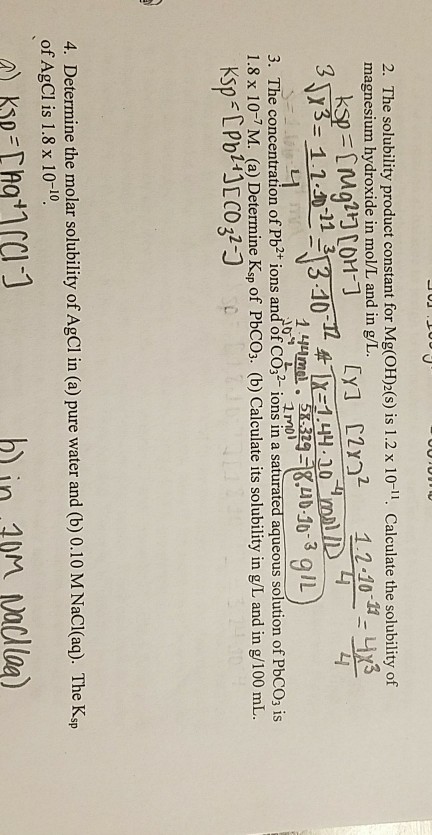 2. The solubility product constant for Mg(OH)₂(s) is 1.2 x 10⁻¹¹. Calculate the solubility of
magnesium hydroxide in mol/L and in g/L.
Ksp = [Mg²⁺][OH⁻]
[x] [2x]²
1.2·10⁻¹¹ = 4x³
4 4
3√x³ = 1.2·10⁻¹¹ = ³√3·10⁻¹²
4
x = 1.44·10⁻⁴ mol/L
1.44 mol · 58.32g = 8.40·10⁻³ g/L
10⁻⁴ L 1 mol
3. The concentration of Pb²⁺ ions and of CO₃²⁻ ions in a saturated aqueous solution of PbCO₃ is
1.8 x 10⁻⁷ M. (a) Determine Ksp of PbCO₃. (b) Calculate its solubility in g/L and in g/100 mL.
Ksp = [Pb²⁺][CO₃²⁻]
4. Determine the molar solubility of AgCl in (a) pure water and (b) 0.10 M NaCl(aq). The Ksp
of AgCl is 1.8 x 10⁻¹⁰.
a) Ksp = [Ag⁺][Cl⁻]
b) in .10M NaCl(aq)